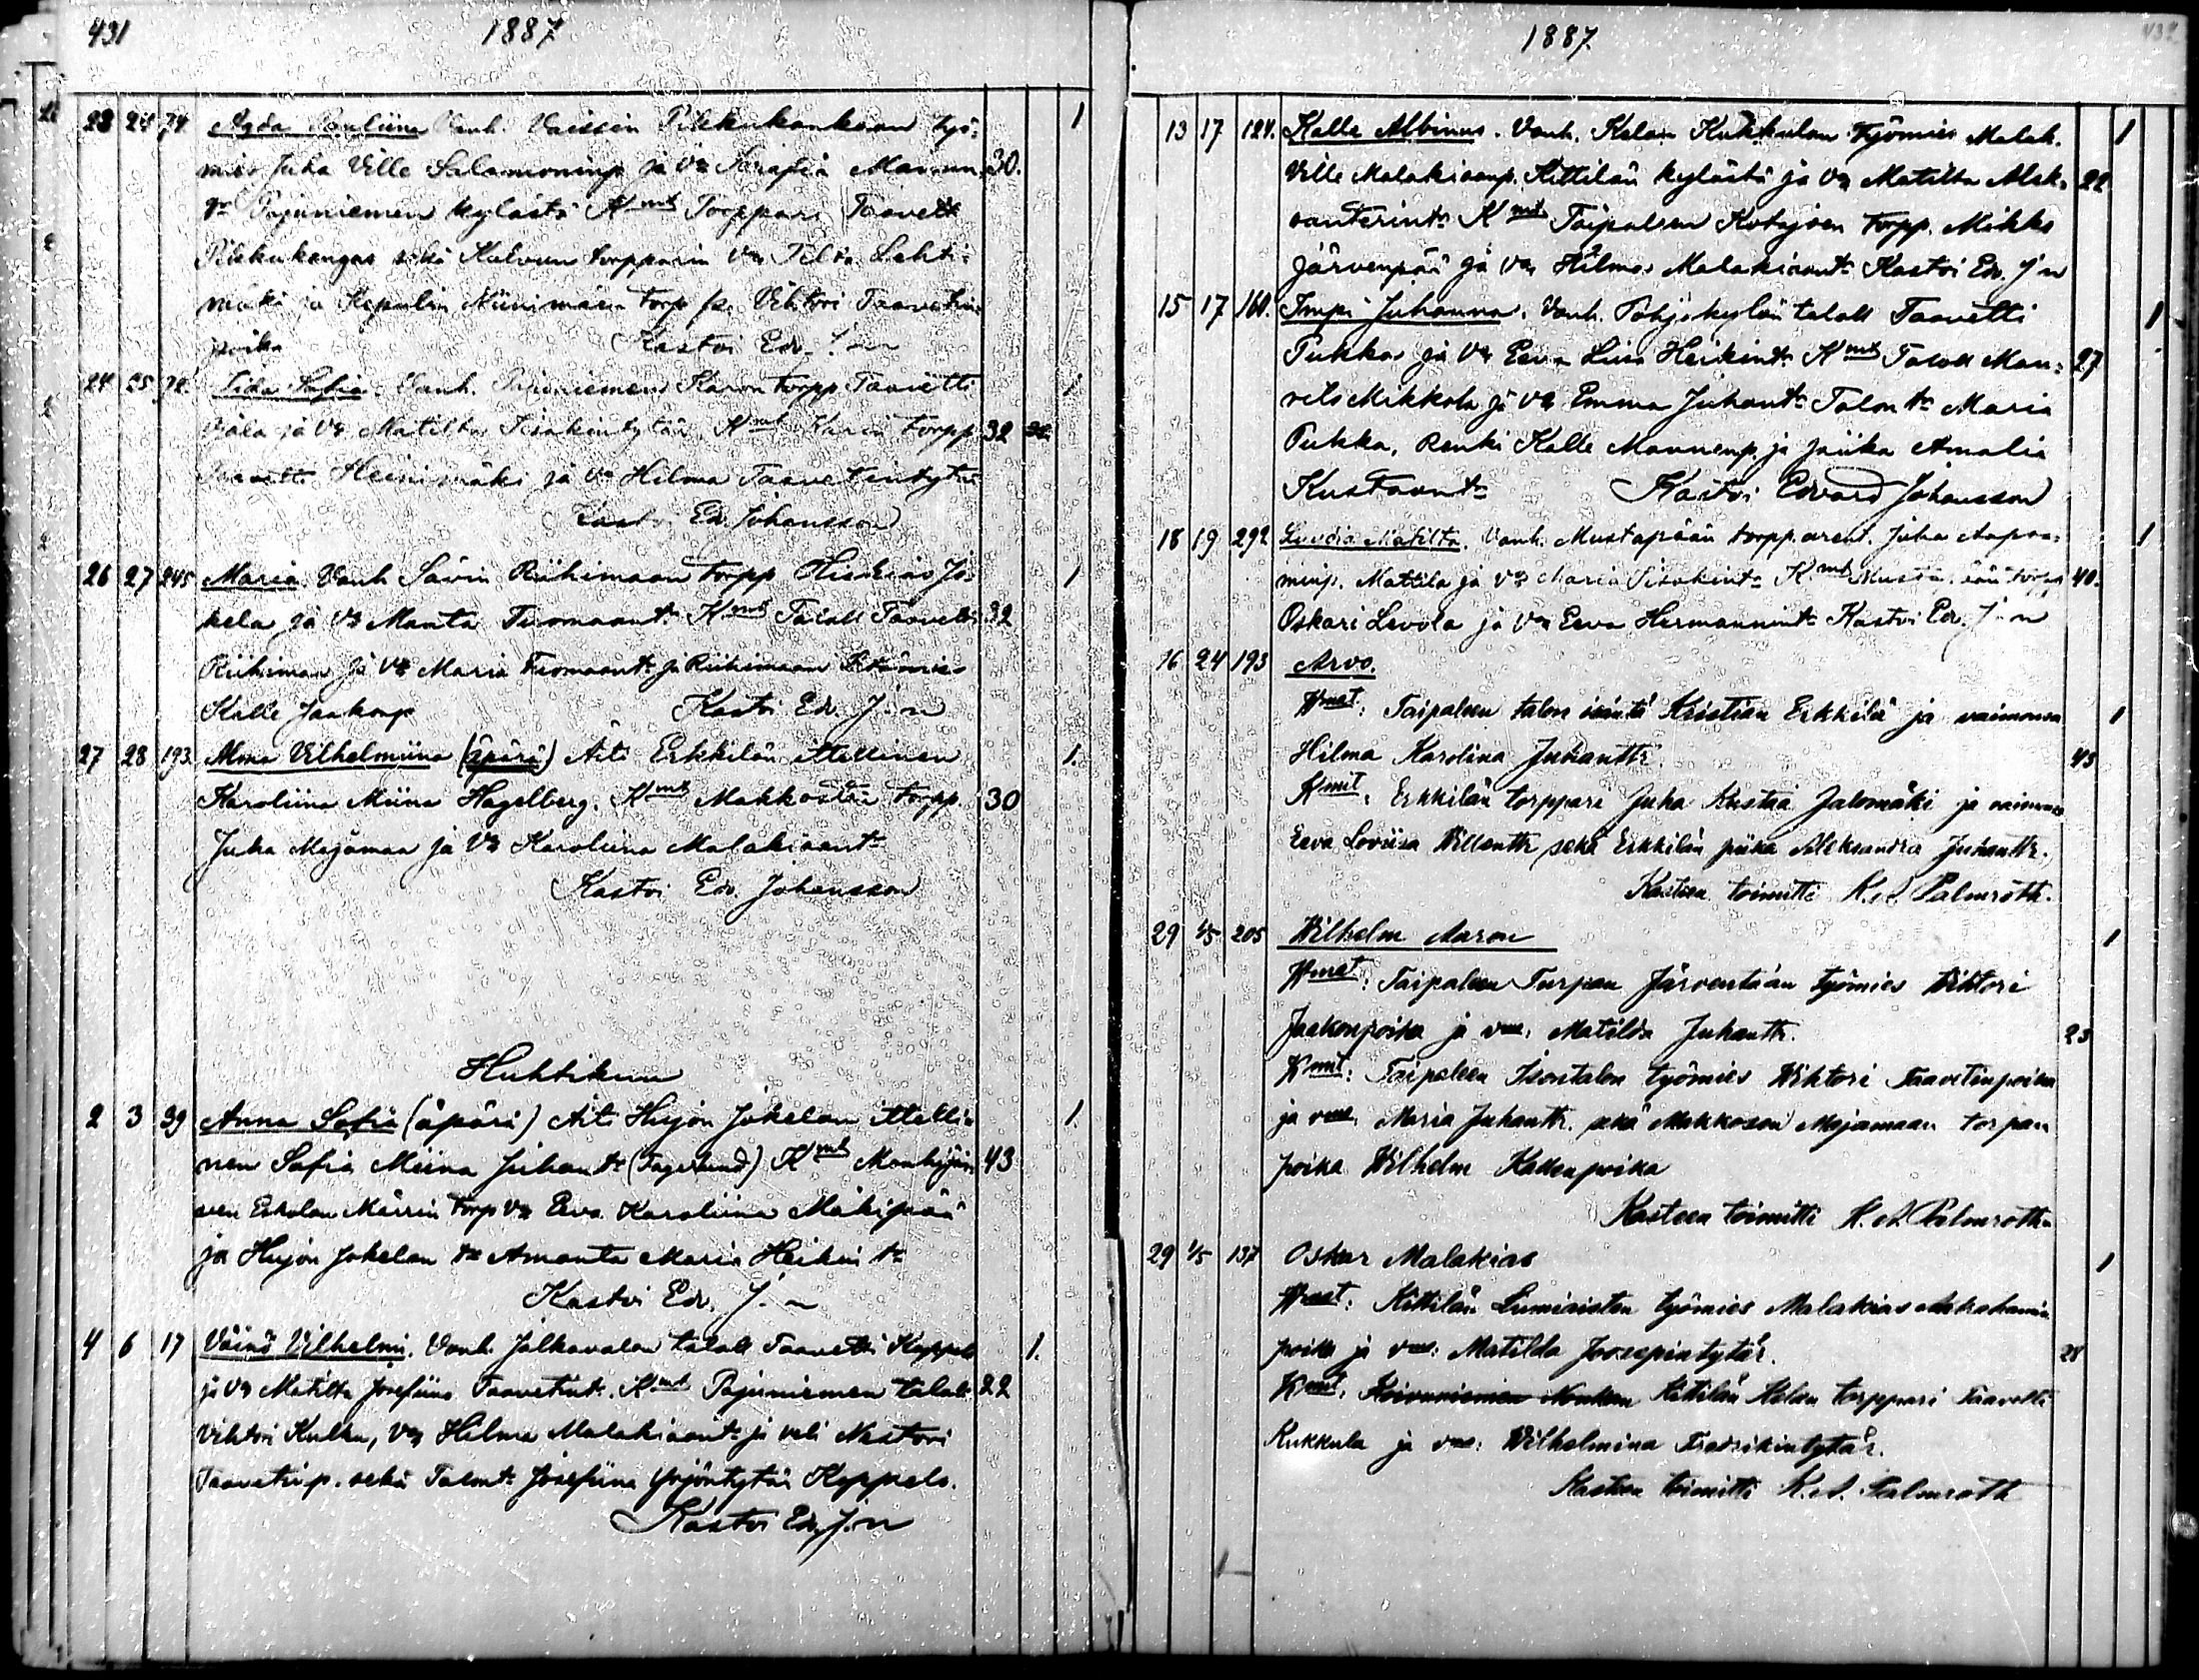 431
1887
23 24 74 Agda Pauliina Vanh. Vaissin Pikkukankaan työ-
mies Juha Ville Salamoninp. ja Vo Serafia Mannun 30. 1
Pajuniemen kylästä Kmit Torppari Taavett
Pikkukangas sekä torpparin Vo Tilda Lehti-
mäki ja Niinimäen torp Vihtori Taavetin
poika Kastoi Edv. J:n
24 25 72. Iida Sofia. Vanh. Pajuniemen torpp Taavetti
ja Vo Matilta Iisakintytär. Kmit torpp 32 1
Taavetti Heinimäki ja Vo Hilma Taavetintytär
Kastoi Ed. Johansson
26 27 245 Maria. Vanh Sävin Riihimaan torpp Jo- 1
kela ja Vo Manta Tuomaant. Kmit Talall Taavetti 32
Riihimaa ja Vo Maria Tuomaant ja Riihimaan
Kalle Jaakonp Kastoi Edv. J:n
27 28 193 Alma Vilhelmiina (äpärä) Äiti Erkkilän ittellinen 1.
Karoliina Miina Hagelberg. Kmit Makkosten torpp. 30
Juha Majamaa ja Vo Karoliina Malakiaant
Kastoi Edv. Johansson
Huhtikuu
2 3 39 Anna Sofia (äpärä) Äiti Hirjön Jokelan ittelli- 1.
nen Sofia Miina Juhant (Fagerlund) Kmit 43
Eskolan torp Vo Eeva Karoliina Mäkipää
ja Jokelan Amanta Maria Heikin t:
Kastoi Edv. J. n
4 6 17 Väinö Vilhelmi. Vanh. Jalkavalan talall Taavetti Keppola 1.
ja Vo Matilta Josefiina Taavetint. Kmit Pajuniemen talall 22
Vihtori Kulku, Vo Hilma Malakiaant ja veli Nestori
Taavetinp. sekä Talont Josefiina Yrjöntytär Keppola.
Kastoi Edv. J:n
432
1887
13 17 124. Kalle Albinus. Vanh. Kelan Kukkulan Työmies Malak. 1
Ville Malakiaanp. Kittilän kylästä ja Vo Matilta Alek- 22
santerint. Kmit Taipaleen Kotajoen torpp. Mikko
Järvenpää ja Vo Hilma Malakiaant. Kastoi Edv. J:n
15 17 160. Impi Juhanna. Vanh. Pohjakylän talall Taavetti 1
Pukka ja Vo Eeva Liisa Heikint. Kmit Talall Man- 27
nels Mikkola ja Vo Emma Juhant. Talon t: Maria
Pukka, Renki Kalle Mannenp. ja piika Amalia
Kustaant. Kastoi Edvard Johansson
18 19 292 Matilta. Vanh. Mustapään torpparent. Juha Aapra- 1
minp. Mattila ja Vo Maria Iisakint. Kmit torpp 40.
Oskari Levola ja Vo Eeva Hermannint. Kastoi Edv. J:n
16 24 193 Arvo.
Wmat: Taipaleen talon isäntä Kristian Erkkilä ja vaimonsa 1
Hilma Karolina Juhanttr. 43
Kmit: Erkkilän torppari Juha Kustaa Jalomäki ja vaimonsa
Eeva Loviisa Willenttr sekä Erkkilän piika Aleksandra Juhanttr.
Kasteen toimitti K. A. Palmroth.
29 1/5 205 Wilhelm Aaron 1
Wmat: Taipaleen Turpan Järventaan työmies Wihtori
Jaakonpoika ja vmo: Matilda Juhanttr. 23
Kmit: Taipaleen Isontalon työmies Wihtori Taavetinpoika
ja vmo. Maria Juhanttr. sekä Makkosen Majamaan torpan
poika Wilhelm Kallenpoika
Kasteen toimitti K. A. Palmroth
29 1/5 137 Oskar Malakias 1
Wmat: Kittilän Lumiaisten työmies Malakias Aabrahamin
poika ja vmo: Matilda Joosepintytär. 28
Kmit: Koivuniemen Kittilän Kelan torppari Taavetti
Kukkula ja vmo: Wilhelmina Fredrikintytär.
Kasteen toimitti K. A. Palmroth